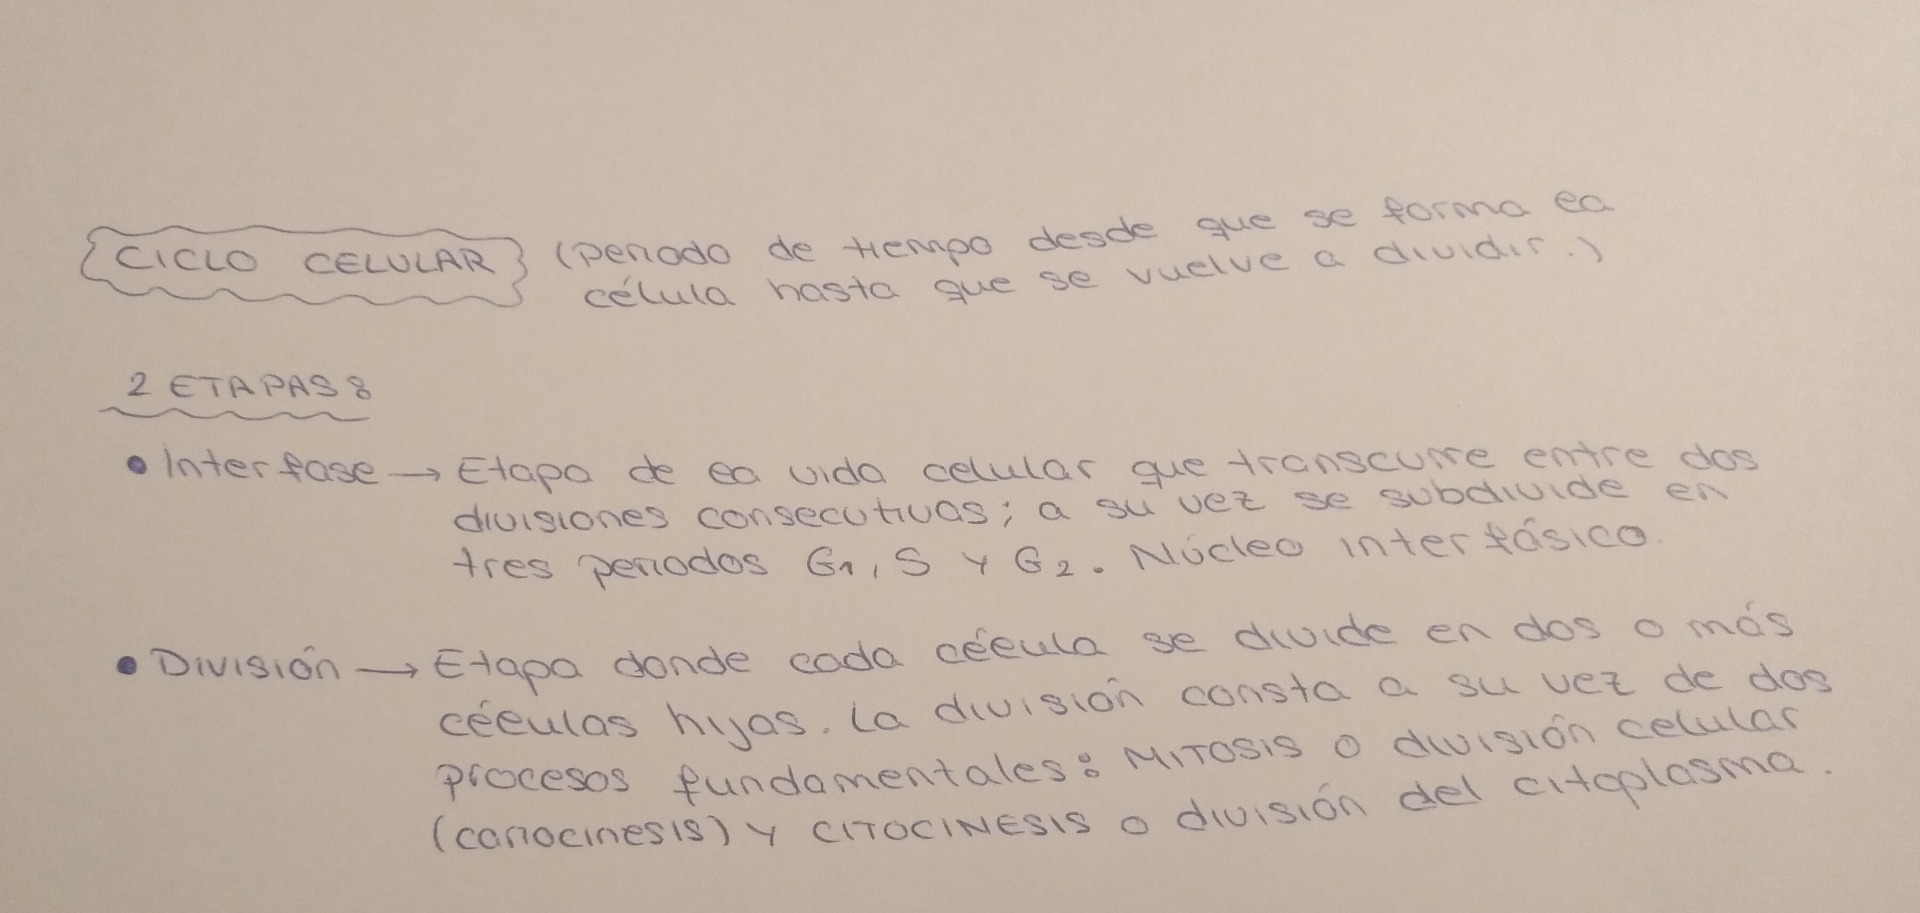 CICLO CELULAR (periodo de tiempo desde que se forma la
célula hasta que se vuelve a dividir.)
2 ETAPAS:
• Interfase → Etapa de la vida celular que transcurre entre dos
divisiones consecutivas; a su vez se subdivide en
tres periodos G1, S y G2. Núcleo interfásico.
• División → Etapa donde cada célula se divide en dos o más
células hijas. La división consta a su vez de dos
procesos fundamentales: MITOSIS o división celular
(cariocinesis) y CITOCINESIS o división del citoplasma.